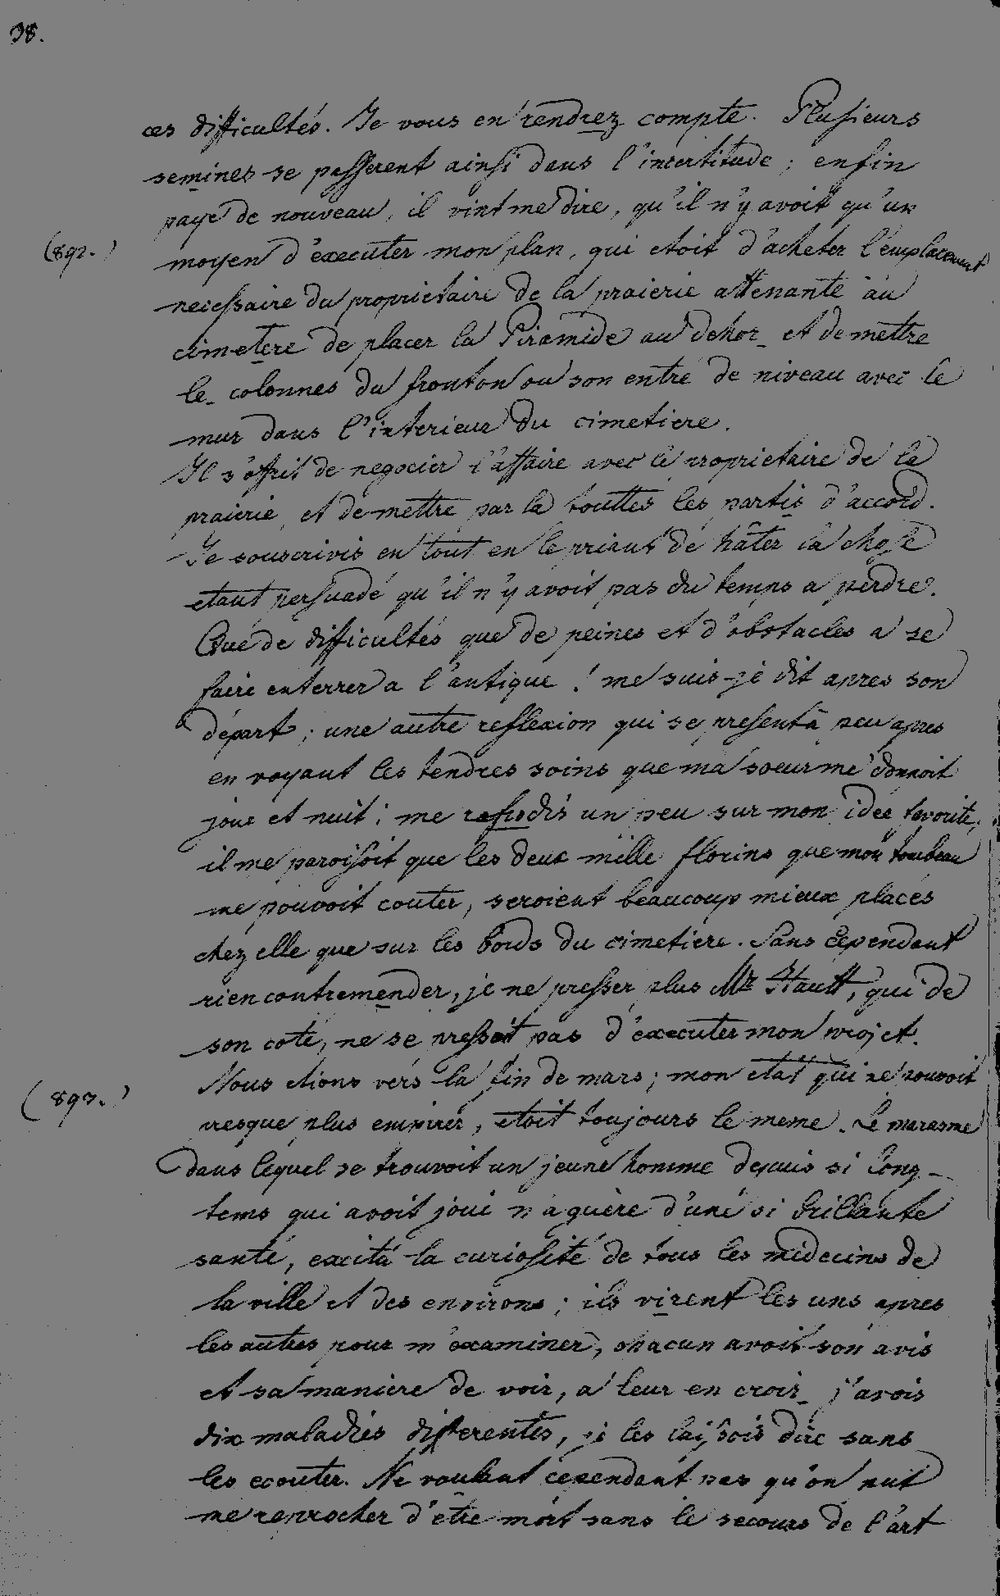 38.
ces difficultés. Je vous en rendrez compte. Plusieurs
semines se passerent ainsi dans l'incertitude ; enfin
payé de nouveau, il vint me dire, qu'il n'y avoit qu'un
(892.)
moyen d'executer mon plan, qui etoit d'acheter l'emplacement
necessaire du proprietaire de la praierie attenante au
cimetere de placer la Piramide au dehor_ et de mettre
le_ colonnes du fronton ou son entré de niveau avec le
mur dans l'interieur du cimetiere.
Il s'offrit de negocier l'affaire avec le proprietaire de la
praierie, et de mettre par la touttes les partis d'accord.
Je souscrivis en tout en le priant de hâter la chose
etant persuadé qu'il n'y avoit pas du temps a perdre.
Que de difficultés que de peines et d'obstacles a se
faire enterrer a l'antique ! me suis-je dit apres son
départ ; une autre reflexion qui se presenta peu apres
en voyant les tendres soins que ma soeur me donnoit
jour et nuit ; me refrodis un peu sur mon idée favorite,
il me paroisoit que les deux mille florins que mon tombeau
me pouvoit couter, seroient beaucoup mieux placés
chez elle que sur les bords du cimetiere. Sans cependant
rien contremender, je ne presser plus Mr Hautt, qui de
son coté, ne se pressoit pas d'executer mon projet.
(893.)
Nous etions vers la fin de mars ; mon etat qui ne pouvoit
presque plus empirer, etoit toujours le meme. Le marasme
dans lequel se trouvoit un jeune homme depuis si long-
tems qui avoit joui n'aguère d'une si brillante
santé, excita la curiosité de tous les médecins de
la ville et des environs ; ils virent les uns apres
les autres pour m'examiner, chacun avoit son avis
et sa maniere de voir, a leur en croir_ j'avois
dix maladies differentes, je les laissois dire sans
les ecouter. Ne voulant cependant pas qu'on put
me reprocher d'etre mort sans le secours de l'art